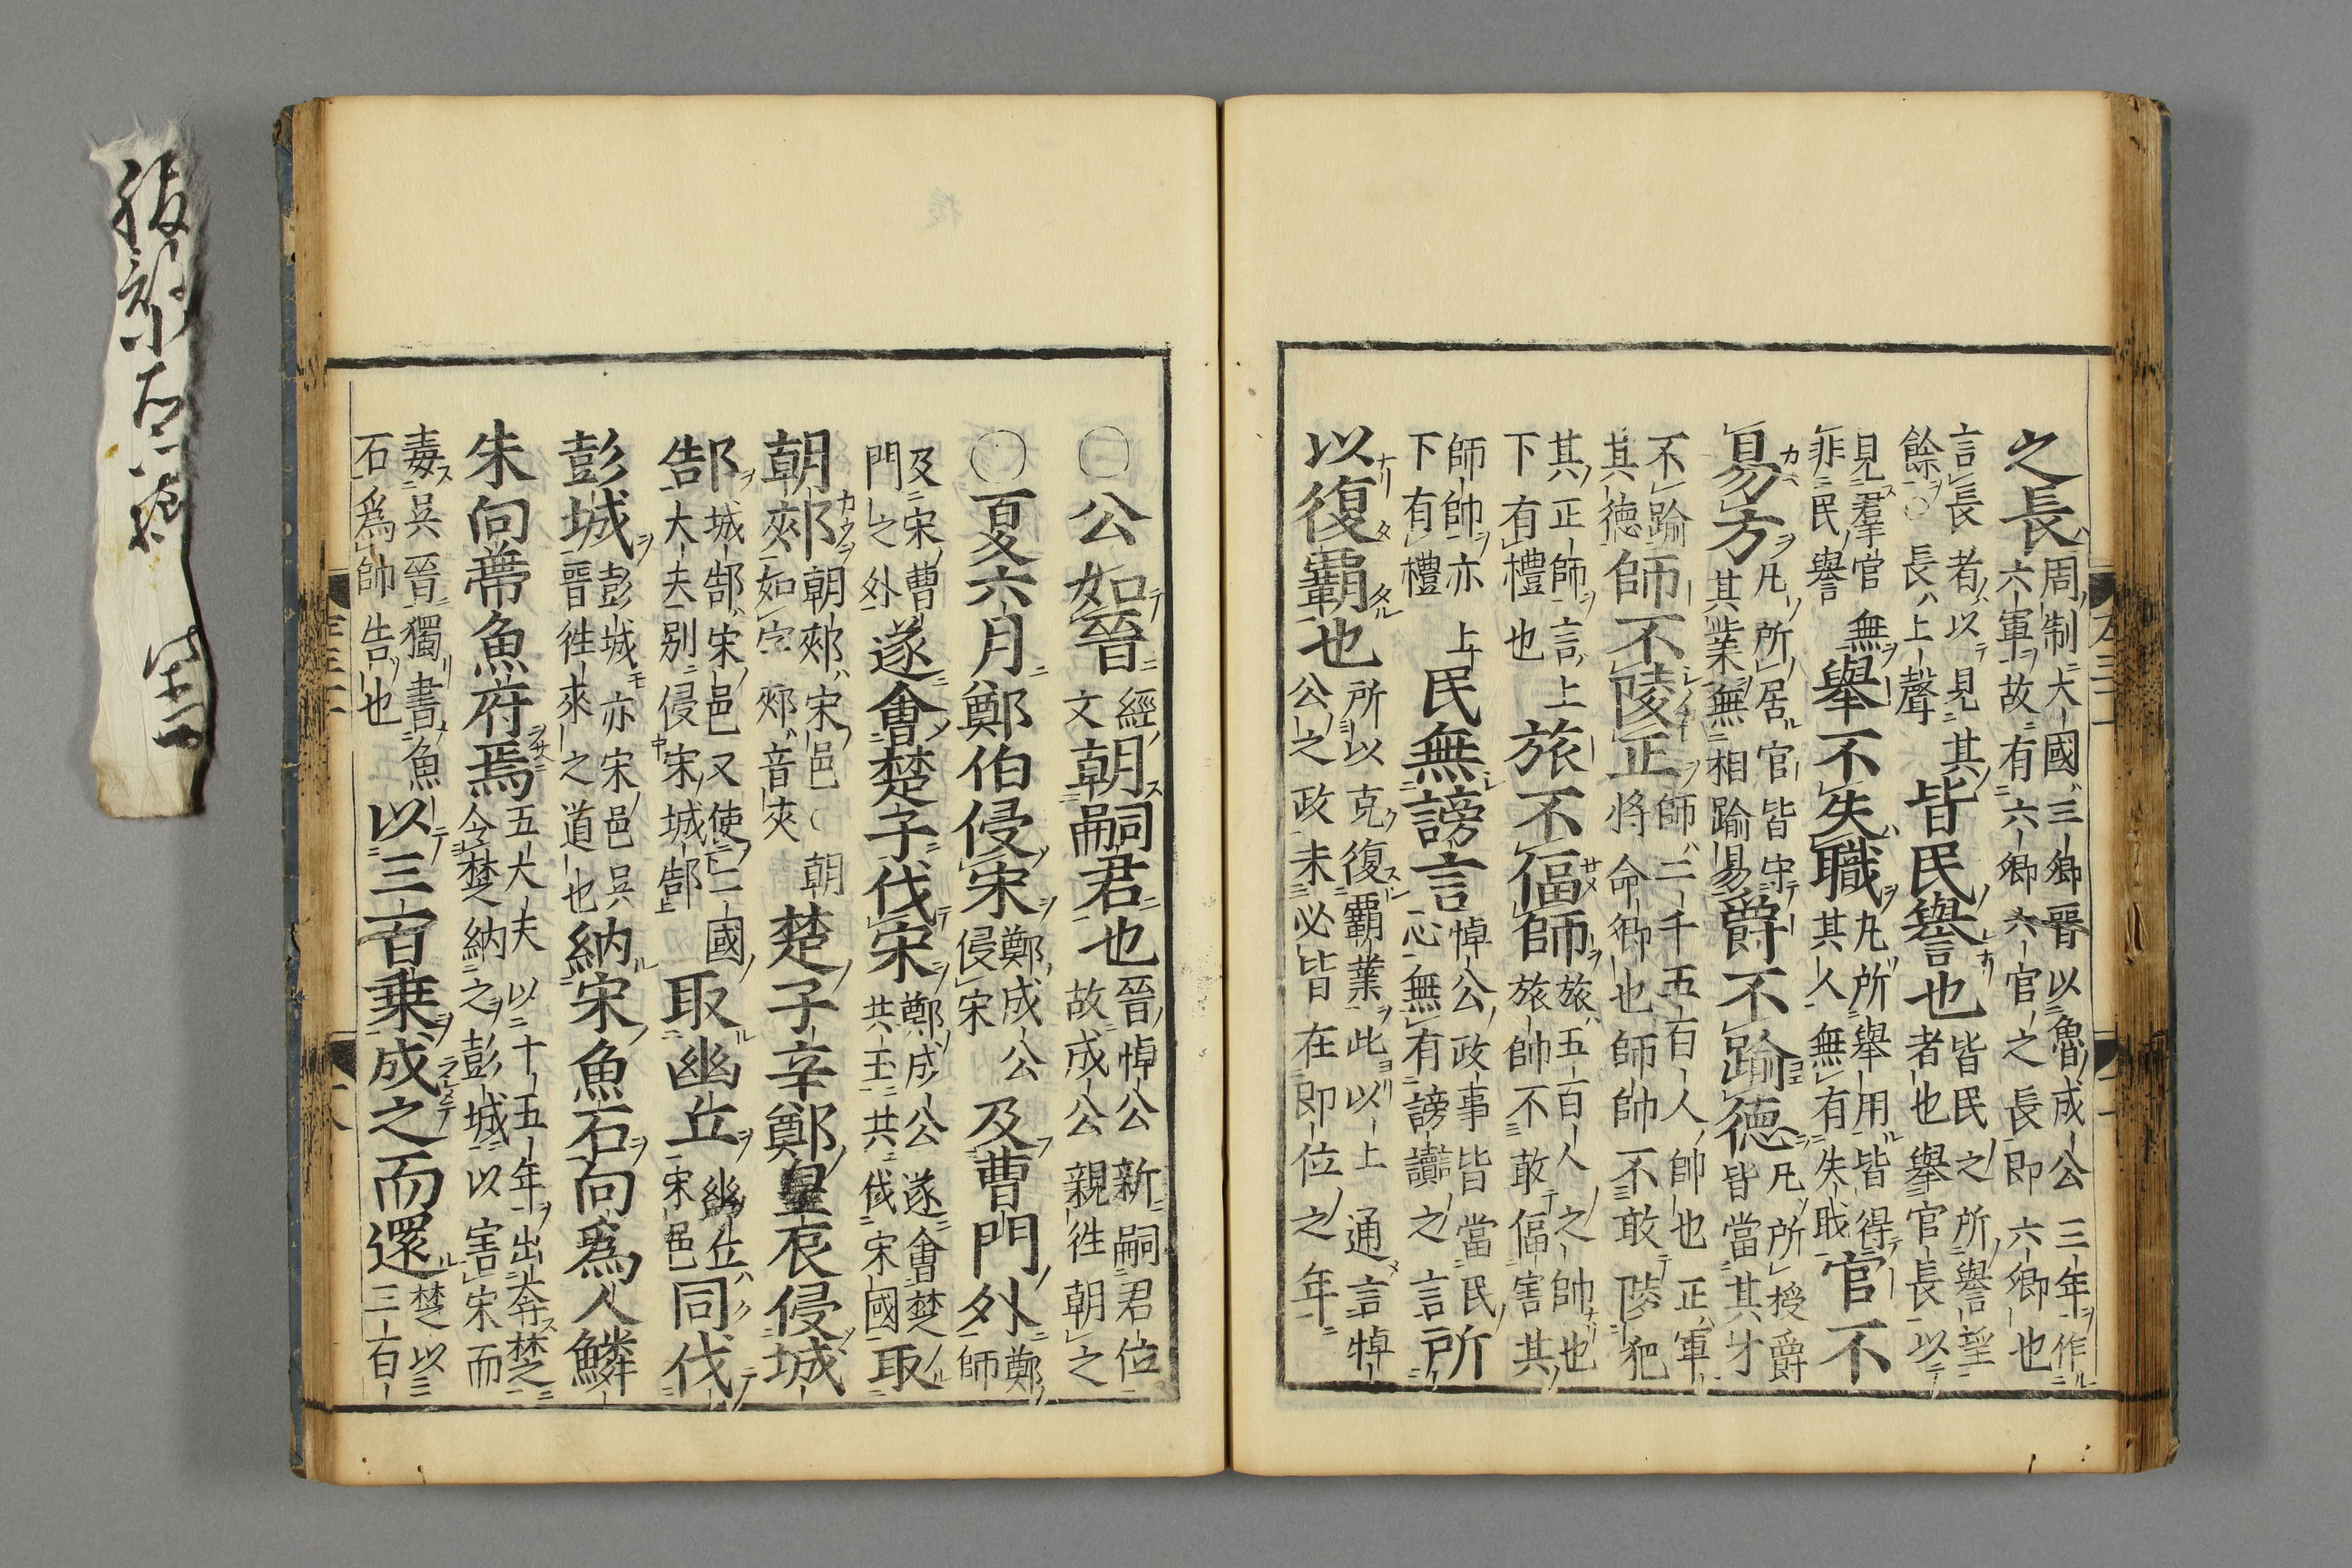 之長周制大國三卿晉以魯成公三年作六軍故有六卿六官之長即六卿也
言長者以見其餘○長上聲皆民譽也皆民之所譽望者也舉官長以
見羣官無非民譽舉不失職凡所舉用皆得其人無有失職官不
易方凡所居官皆守其業無相踰易爵不踰德凡所授爵皆當其才
不踰其德師不陵正師二千五百人帥也正軍將命卿也師帥不敢陵犯
其正師言上下有禮也旅不偪師旅五百人之帥也旅帥不敢偪害其
師帥亦上下有禮民無謗言悼公政事皆當民心無有謗讟之言所
以復霸也所以克復霸業此以上通言悼公之政未必皆在即位之年
○公如晉經文朝嗣君也晉悼公新嗣君位故成公親徃朝之
○夏六月鄭伯侵宋鄭成公侵宋及曹門外鄭師
及宋曹門之外遂會楚子伐宋鄭成公遂會楚共王共伐宋國取
朝郟朝郟宋邑朝如字郟音夾楚子辛鄭皇辰侵城
郜城郜宋邑又使二國大夫别侵宋城郜取幽丘幽丘宋邑同伐
彭城彭城亦宋邑吳晉徃來之道也納宋魚石向爲人鱗
朱向帶魚府焉五大夫以十五年出奔楚今楚納之彭城以害宋而
毒吳晉獨書魚石爲帥告也以三百乗戍之而還楚以三百